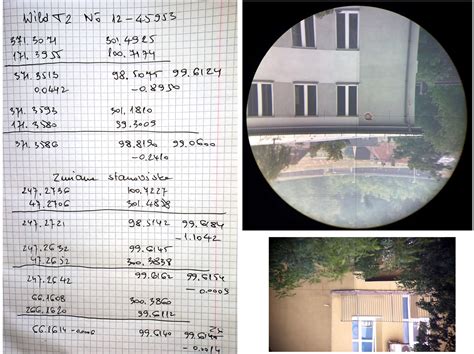 Wild T2 No 12-45953
371.3071 301.4925
171.3955 100.7174
371.3513 98.5045 99.6124
0.0442 -0.8950
371.3593 301.1810
171.3580 99.3009
371.3586 98.8190 99.0600
-0.2410
Zmiana stanowiska
247.2736 100.4227
47.2706 301.4838
247.2721 98.5142 99.6184
-1.1042
47.2632 99.6145
247.2652 300.3838
247.2642 99.6162 99.6154
-0.0003
66.1608 300.3860
266.1620 99.6112
66.1614 99.6140
-0.0014